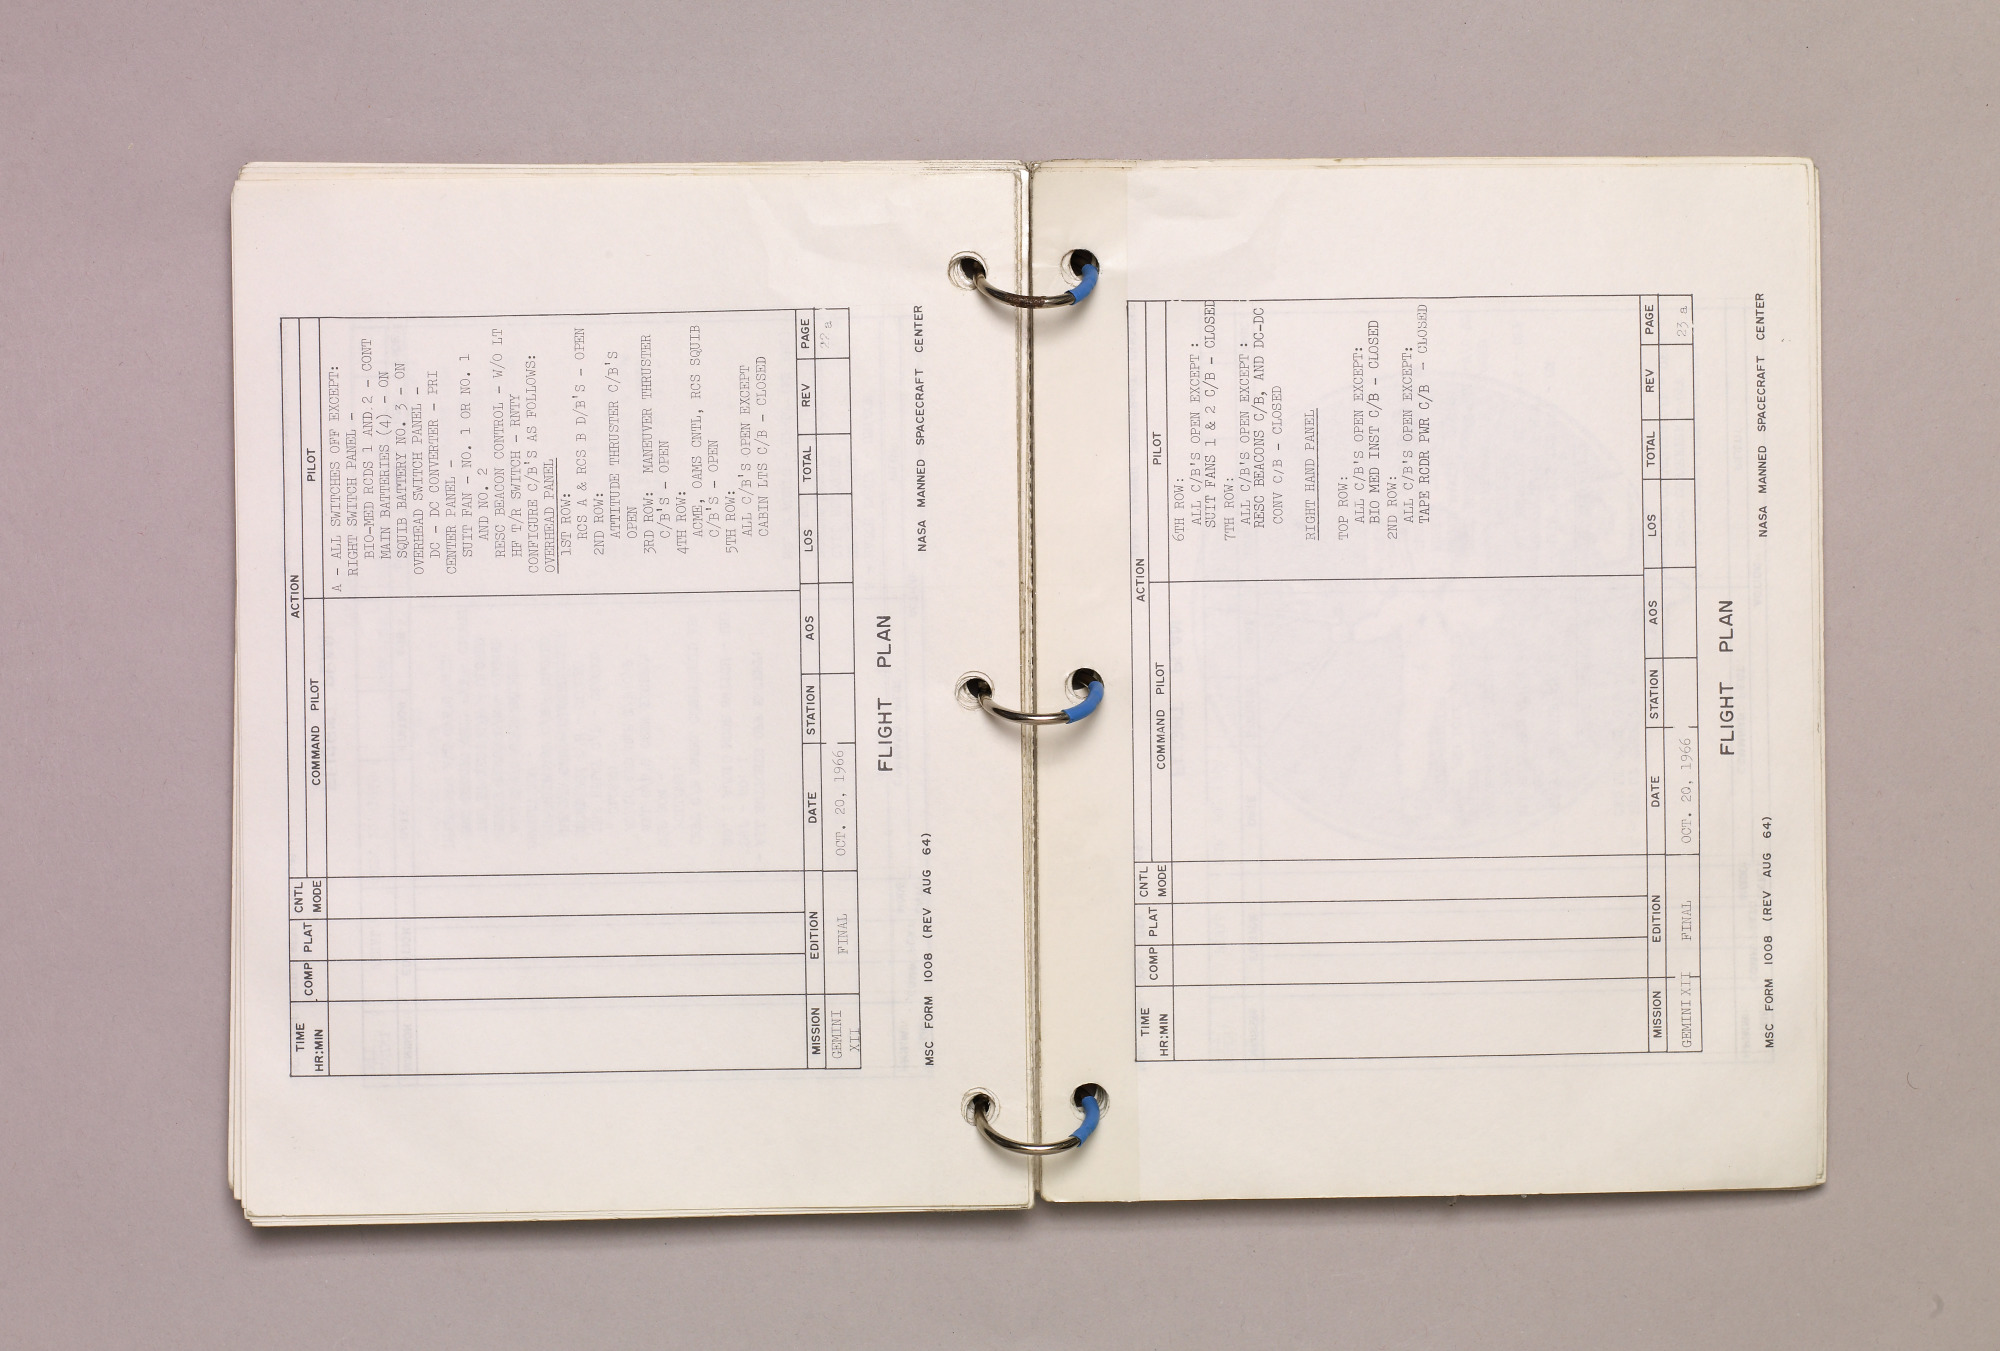 TIME
HR:MIN
COMP
PLAT
CNTL
MODE
ACTION
COMMAND PILOT
PILOT
A - ALL SWITCHES OFF EXCEPT:
RIGHT SWITCH PANEL -
BIO-MED RCDS 1 AND 2 - CONT
MAIN BATTERIES (4) - ON
SQUIB BATTERY NO. 3 - ON
OVERHEAD SWITCH PANEL -
DC - DC CONVERTER - PRI
CENTER PANEL -
SUIT FAN - NO. 1 OR NO. 1
AND NO. 2
RESC BEACON CONTROL - W/O LT
HF T/R SWITCH - RNTY
CONFIGURE C/B'S AS FOLLOWS:
OVERHEAD PANEL
1ST ROW:
RCS A & RCS B D/B'S - OPEN
2ND ROW:
ATTITUDE THRUSTER C/B'S
OPEN
3RD ROW: MANEUVER THRUSTER
C/B'S - OPEN
4TH ROW:
ACME, OAMS CNTL, RCS SQUIB
C/B'S - OPEN
5TH ROW:
ALL C/B'S OPEN EXCEPT
CABIN LTS C/B - CLOSED
MISSION EDITION DATE STATION AOS LOS TOTAL REV PAGE
GEMINI XII FINAL OCT. 20, 1966 22 a
FLIGHT PLAN
MSC FORM 1008 (REV AUG 64) NASA MANNED SPACECRAFT CENTER
TIME
HR:MIN
COMP
PLAT
CNTL
MODE
ACTION
COMMAND PILOT
PILOT
6TH ROW:
ALL C/B'S OPEN EXCEPT :
SUIT FANS 1 & 2 C/B - CLOSED
7TH ROW:
ALL C/B'S OPEN EXCEPT :
RESC BEACONS C/B, AND DC-DC
CONV C/B - CLOSED
RIGHT HAND PANEL
TOP ROW:
ALL C/B'S OPEN EXCEPT:
BIO MED INST C/B - CLOSED
2ND ROW:
ALL C/B'S OPEN EXCEPT:
TAPE RCDR PWR C/B - CLOSED
MISSION EDITION DATE STATION AOS LOS TOTAL REV PAGE
GEMINI XII FINAL OCT. 20, 1966 23 a
FLIGHT PLAN
MSC FORM 1008 (REV AUG 64) NASA MANNED SPACECRAFT CENTER